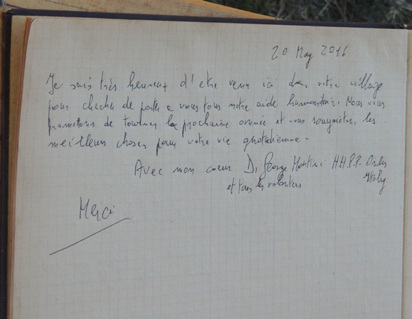 20 May 2016
Je suis très heureux d'etre venu ici dans votre village
pour chercher de porter a vous tous notre aide humanitaire. Nous vous
promettons de tourner la prochaine année et vous souhaitons les
meilleurs choses pour votre vie quotidienne.
Avec mon coeur Dr George H.H.P.P. Italy
et tous les volontaires
Merci